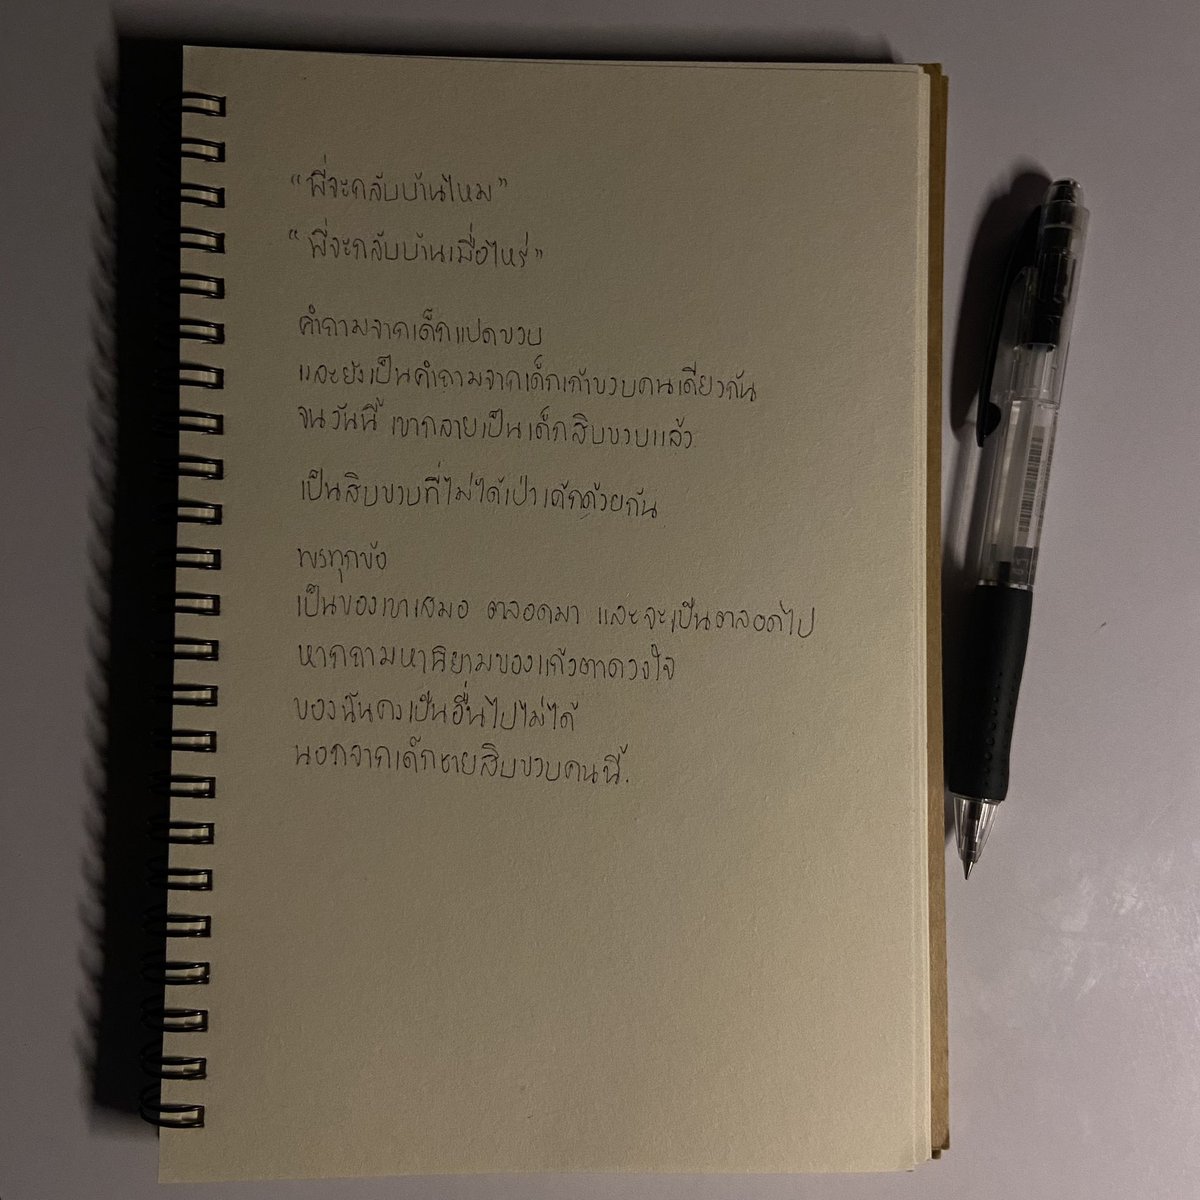 “พี่จะกลับบ้านไหม”
“พี่จะกลับบ้านเมื่อไหร่”
คำถามจากเด็กแปดขวบ
และยังเป็นคำถามจากเด็กเก้าขวบคนเดียวกัน
จนวันนี้ เขากลายเป็นเด็กสิบขวบแล้ว
เป็นสิบขวบที่ไม่ได้เป่าเค้กด้วยกัน
พรทุกข้อ
เป็นของเขาเสมอ ตลอดมา และจะเป็นตลอดไป
หากถามหานิยามของแก้วตาดวงใจ
ของฉันคงเป็นอื่นไปไม่ได้
นอกจากเด็กชายสิบขวบคนนี้.